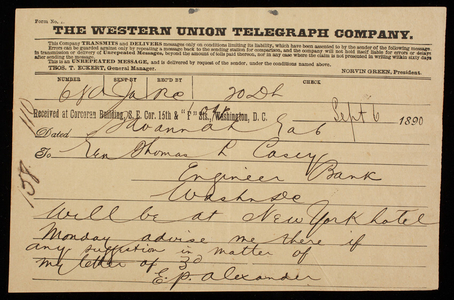 Form No.
THE WESTERN UNION TELEGRAPH COMPANY.
This Company TRANSMITS and DELIVERS messages only on conditions limiting its liability, which have been assented to by the sender of the following message.
Errors can be guarded against only by repeating a message back to the sending station for comparison, and the company will not hold itself liable for errors or delays
in transmission or delivery of Unrepeated Messages, beyond the amount of tolls paid thereon, nor in any case where the claim is not presented in writing within sixty days
after sending the message.
This is an UNREPEATED MESSAGE, and is delivered by request of the sender, under the conditions named above.
THOS. T. ECKERT, General Manager. NORVIN GREEN, President.
NUMBER SENT BY REC'D BY CHECK
20 Dh
Received at Corcoran Building, S. E. Cor. 15th & "F" Sts., Washington, D. C. Sept 6 1890
Dated Savannah Ga 6
To Gen Thomas L Casey
Engineer Bank
Washn DC
Will be at New York hotel
Monday advise me there if
any suggestion in matter of
my letter of 3d
E.P. Alexander
158